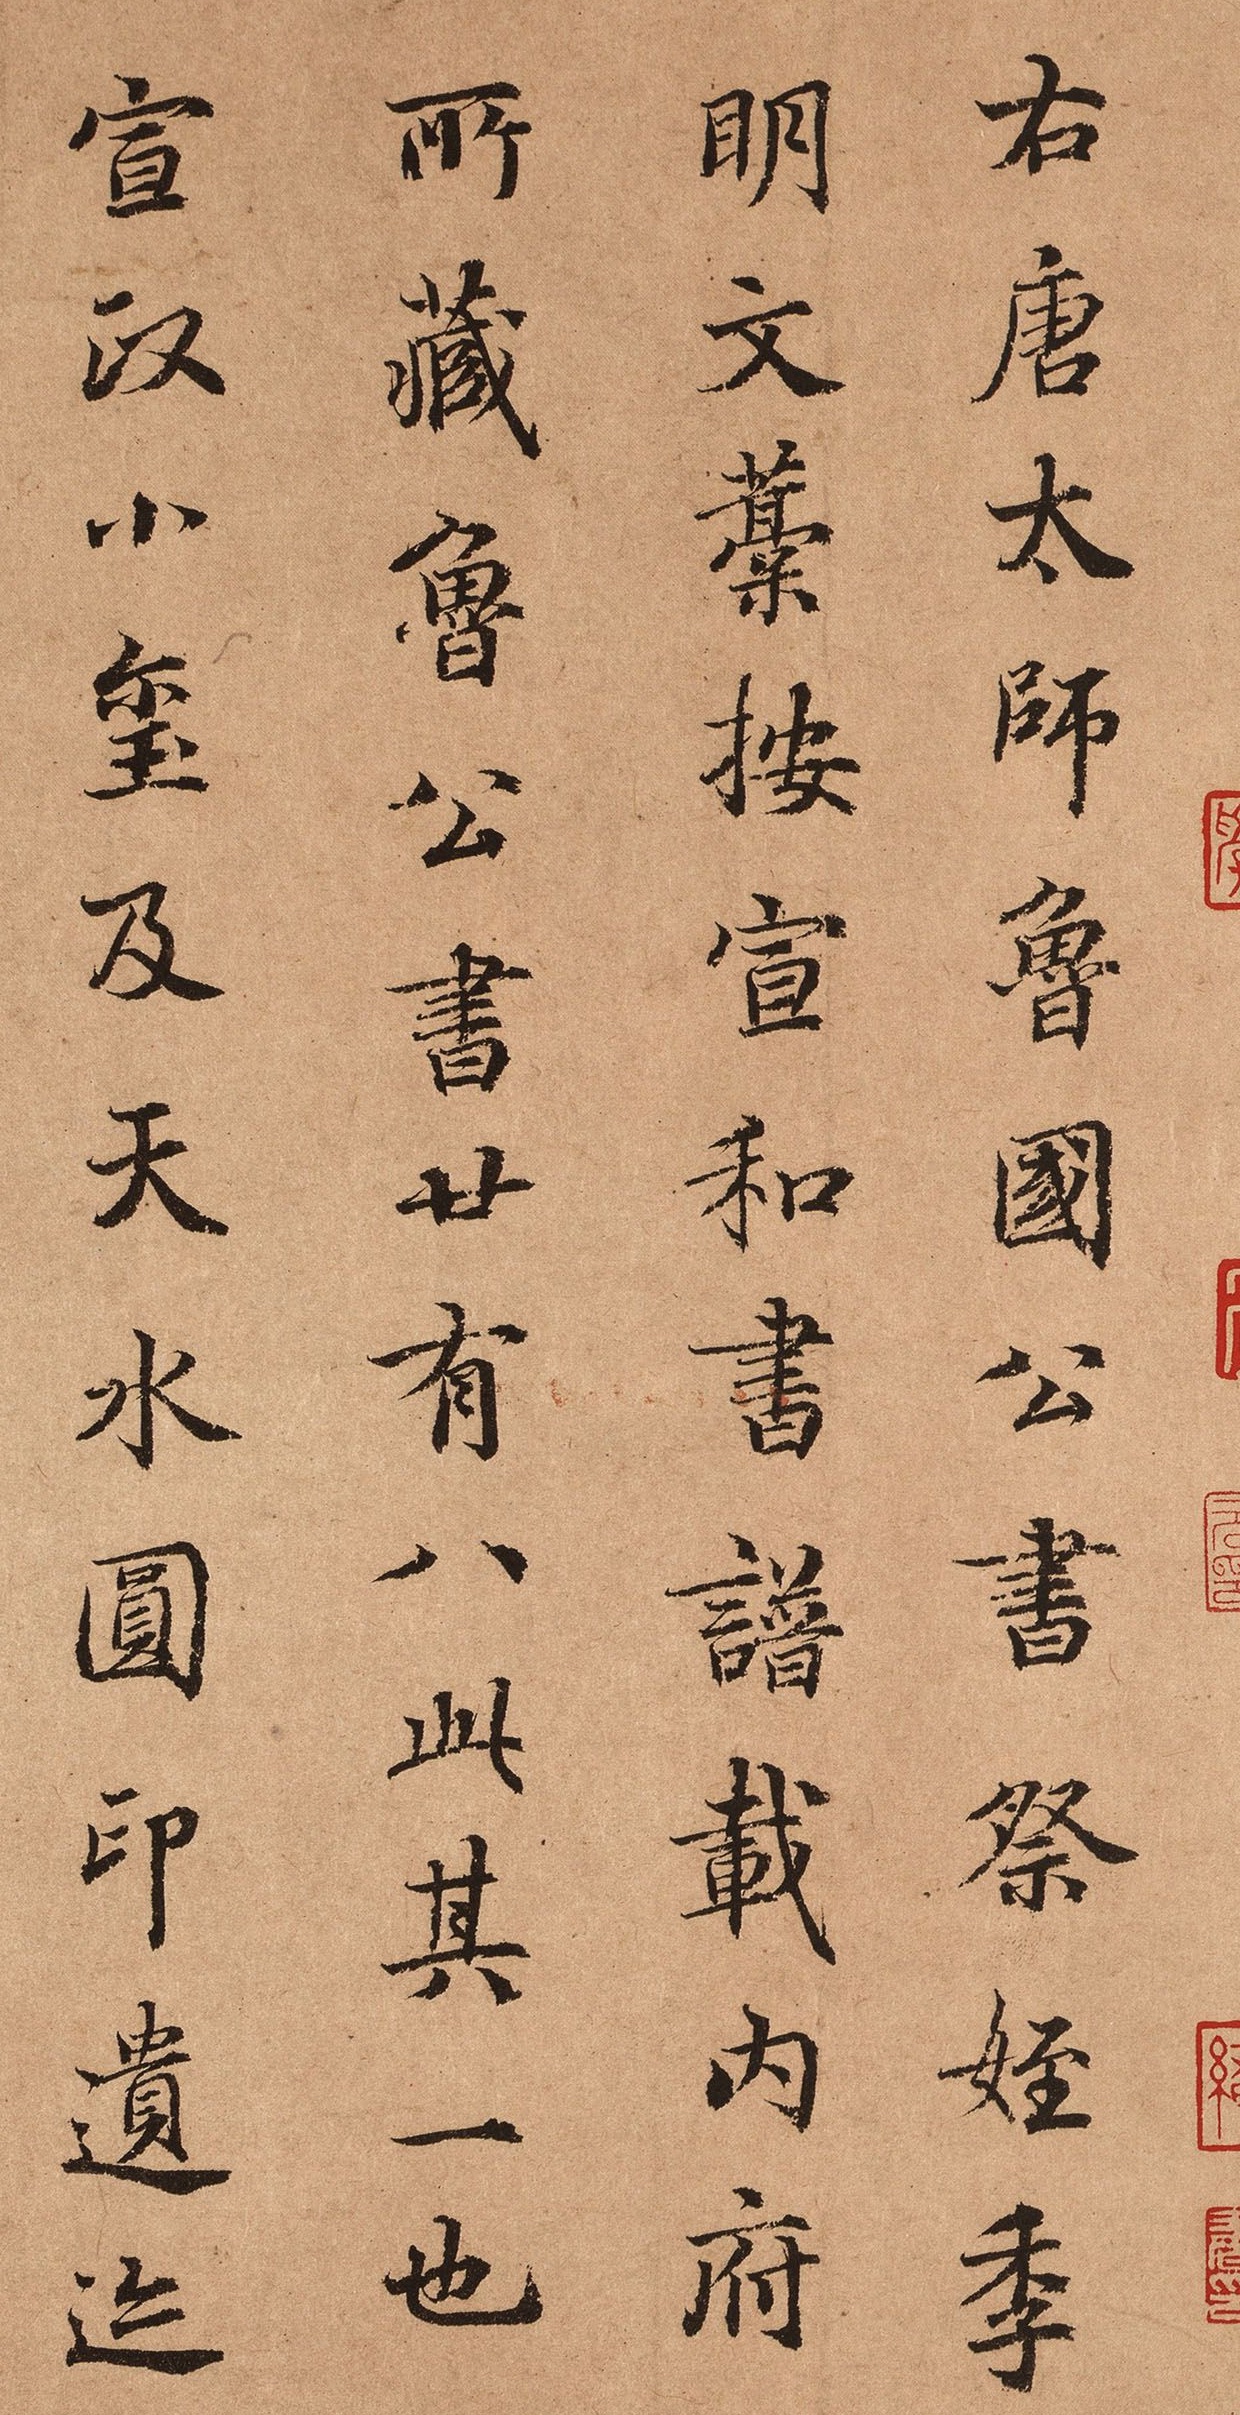 右唐太師魯國公書祭姪季
明文藳按宣和書譜載內府
所藏魯公書廿有八此其一也
宣政小璽及天水圓印遺迹